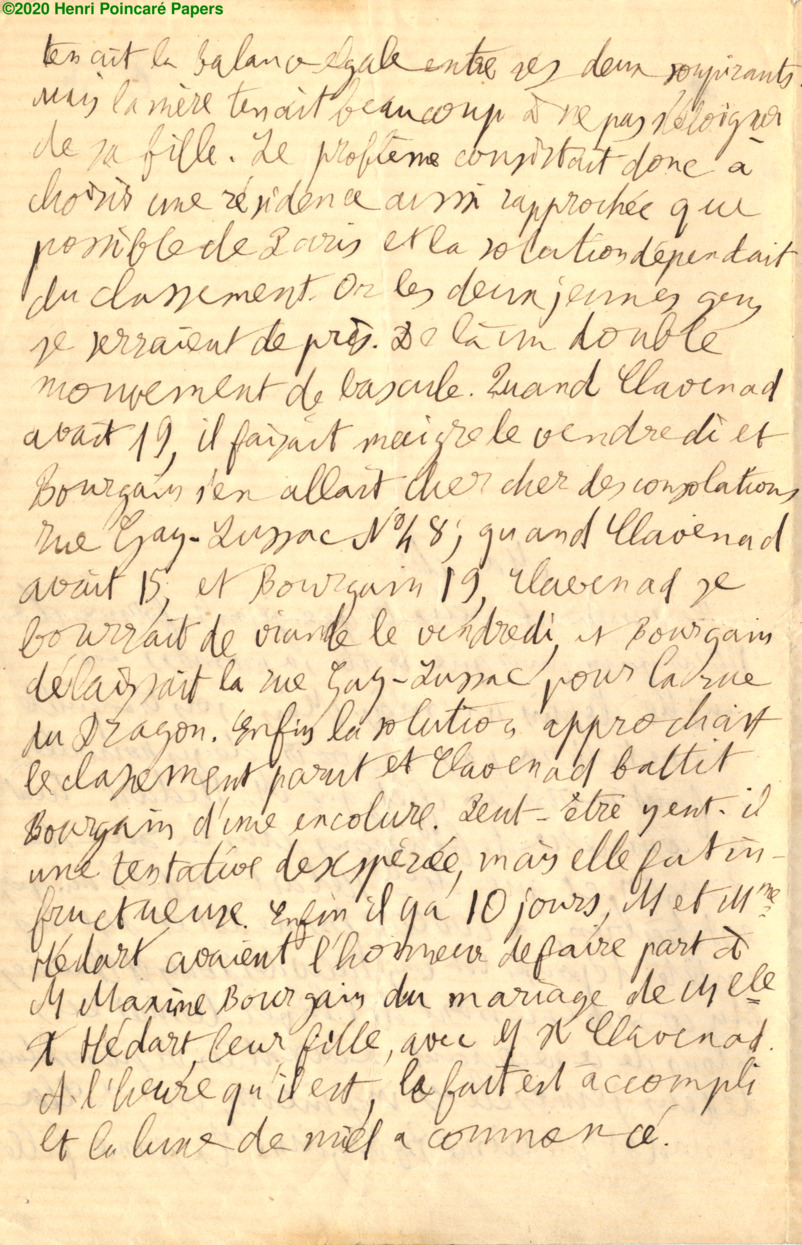 ©2020 Henri Poincaré Papers
tenait la balance égale entre ses deux soupirants.
Mais la mère tenait beaucoup à ne pas s'éloigner
de sa fille. Le problème consistait donc à
choisir une résidence aussi rapprochée que
possible de Paris et la solution dépendait
du classement. Or les deux jeunes gens
se serraient de près. De là un double
mouvement de bascule. Quand Clavenad
avait 19, il faisait maigre le vendredi et
Bourgain s'en allait chercher des consolations
rue Gay-Lussac N° 48; quand Clavenad
avait 15, et Bourgain 19, Clavenad se
bourrait de viande le vendredi, et Bourgain
délaissait la rue Gay-Lussac pour la rue
du Dragon. Enfin la solution approchait
le classement parut et Clavenad battit
Bourgain d'une encolure. Peut-être y eut-il
une tentative desespérée, mais elle fut in-
fructueuse. Enfin il y a 10 jours, M et Mme
Hédart avaient l'honneur de faire part à
M Maxime Bourgain du mariage de Melle
X Hédart, leur fille, avec M X Clavenad.
A l'heure qu'il est, le fait est accompli
et la lune de miel a commencé.